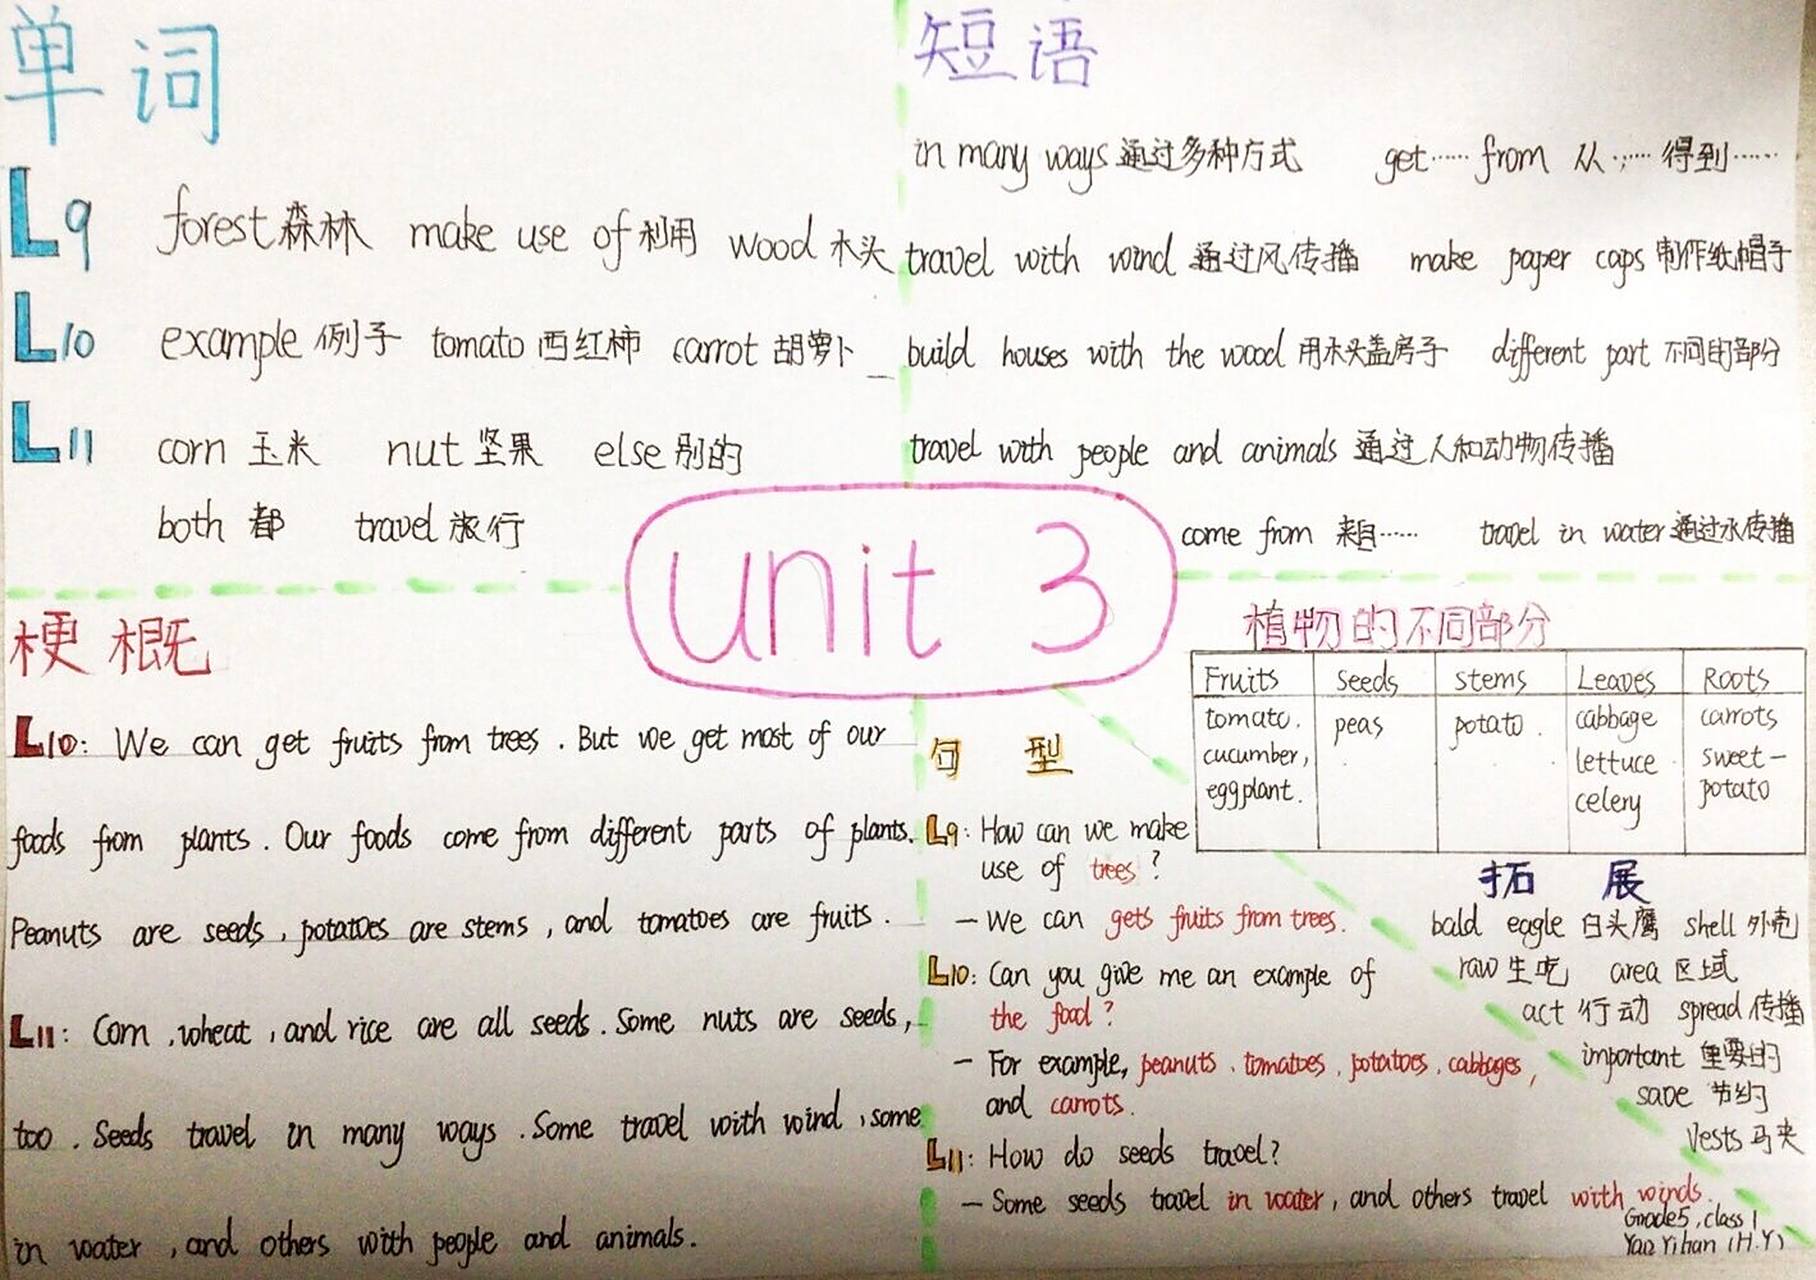 单词
L9 forest 森林 make use of 利用 wood 木头
L10 example 例子 tomato 西红柿 carrot 胡萝卜
L11 corn 玉米 nut 坚果 else 别的
both 都 travel 旅行
短语
in many ways 通过多种方式 get······from 从······得到······
travel with wind 通过风传播 make paper caps 制作纸帽子
build houses with the wood 用木头盖房子 different part 不同的部分
travel with people and animals 通过人和动物传播
come from 来自······ travel in water 通过水传播
unit 3
梗概
L10: We can get fruits from trees. But we get most of our
foods from plants. Our foods come from different parts of plants.
Peanuts are seeds, potatoes are stems, and tomatoes are fruits.
L11: Corn, wheat, and rice are all seeds. Some nuts are seeds,
too. Seeds travel in many ways. Some travel with wind, some
in water, and others with people and animals.
植物的不同部分
Fruits Seeds stems Leaves Roots
tomato. peas potato. cabbage carrots
cucumber, lettuce sweet-
eggplant. celery potato
句型
L9: How can we make
use of trees?
- We can gets fruits from trees.
L10: Can you give me an example of
the food?
- For example, peanuts, tomatoes, potatoes, cabbages,
and carrots.
L11: How do seeds travel?
- Some seeds travel in water, and others travel with winds.
拓展
bald eagle 白头鹰 shell 外壳
raw 生吃 area 区域
act 行动 spread 传播
important 重要的
save 节约
Vests 马夹
Grade5, class 1
Yao Yihan (H.Y)